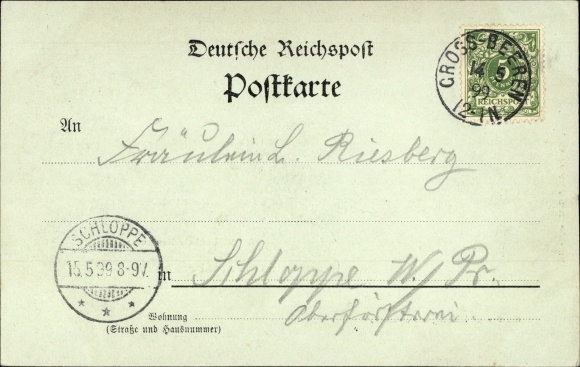 Deutsche Reichspost
Postkarte
GROSS-BEEREN
14 5
99
12-1N.
5
REICHSPOST
An
Fräulein L. Riesberg
SCHLOPPE
15.5.99 8-9V.
in Schloppe W/Pr.
Oberförsterei
Wohnung
(Straße und Hausnummer)